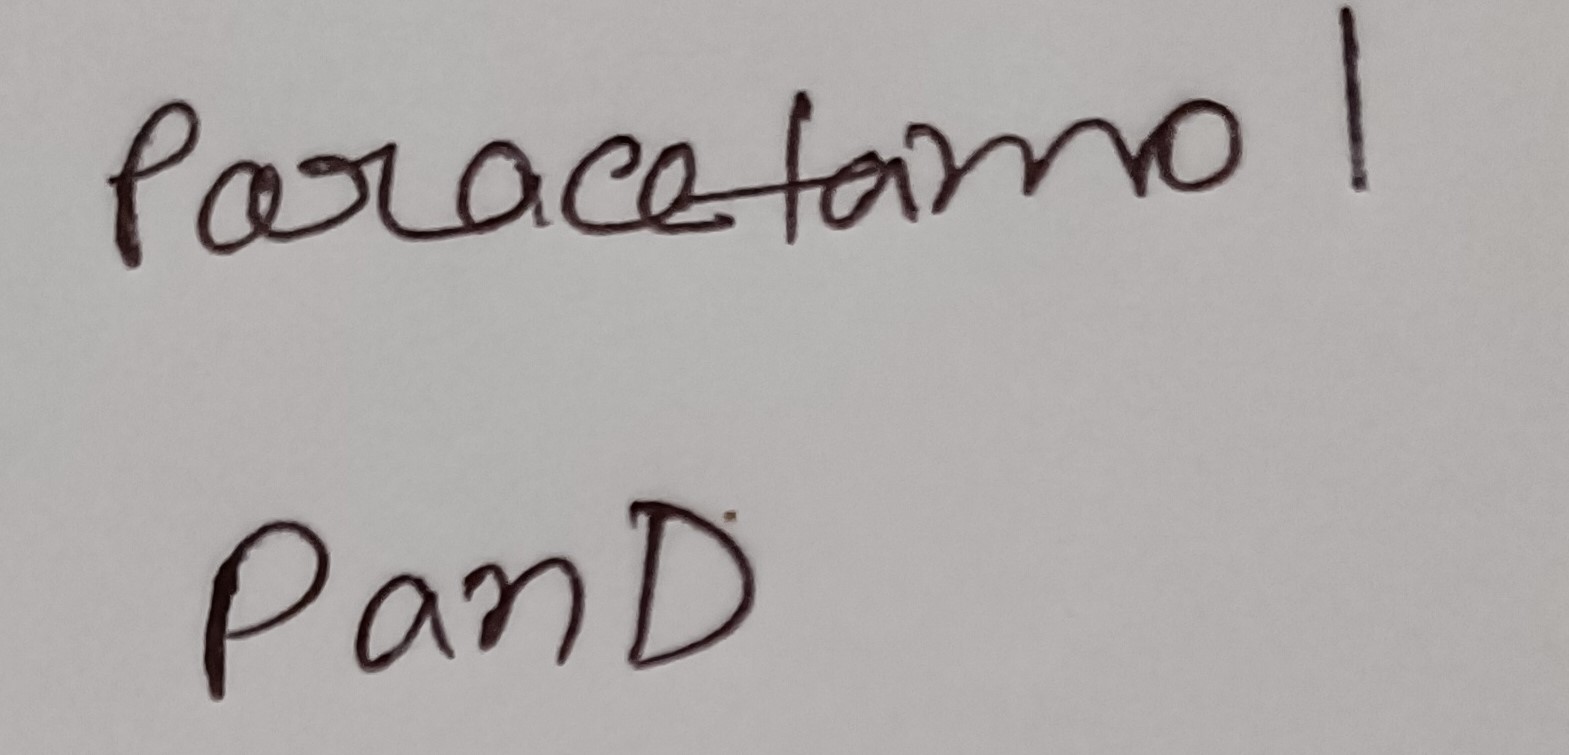 Paracetamol
PanD